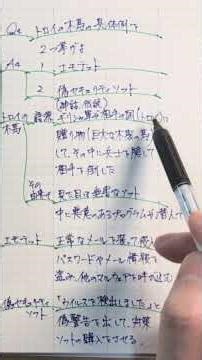 Q. トロイの木馬の具体例を
2つ挙げよ
A. 1 エモテット
2 偽セキュリティソフト
(神話・伝説)
トロイの 語源 ギリシャ軍が相手の国(トロイ)に
木馬 贈り物(巨大な木製の馬)
して、その中に兵士を隠して
相手を倒した
その 見た目は無害なソフト
中に悪意のあるプログラムが潜入
エモテット 正常なメールを装って侵入
パスワードやメール情報を
盗み、他のマルウェアを呼び込む
偽セキュリティ 「ウイルスを検出しました」と
ソフト 偽警告を出して、
ソフトの購入をせまる。